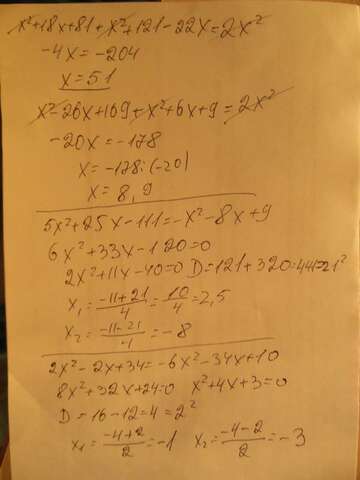 x²+18x+81+x²+121-22x=2x²
-4x=-204
x=51
x²-26x+169+x²+6x+9=2x²
-20x=-178
x=-178:(-20)
x=8,9
5x²+25x-111=-x²-8x+9
6x²+33x-120=0
2x²+11x-40=0 D=121+320=441=21²
x₁=(-11+21)/4=10/4=2,5
x₂=(-11-21)/4=-8
2x²-2x+34=-6x²-34x+10
8x²+32x+24=0 x²+4x+3=0
D=16-12=4=2²
x₁=(-4+2)/2=-1 x₂=(-4-2)/2=-3